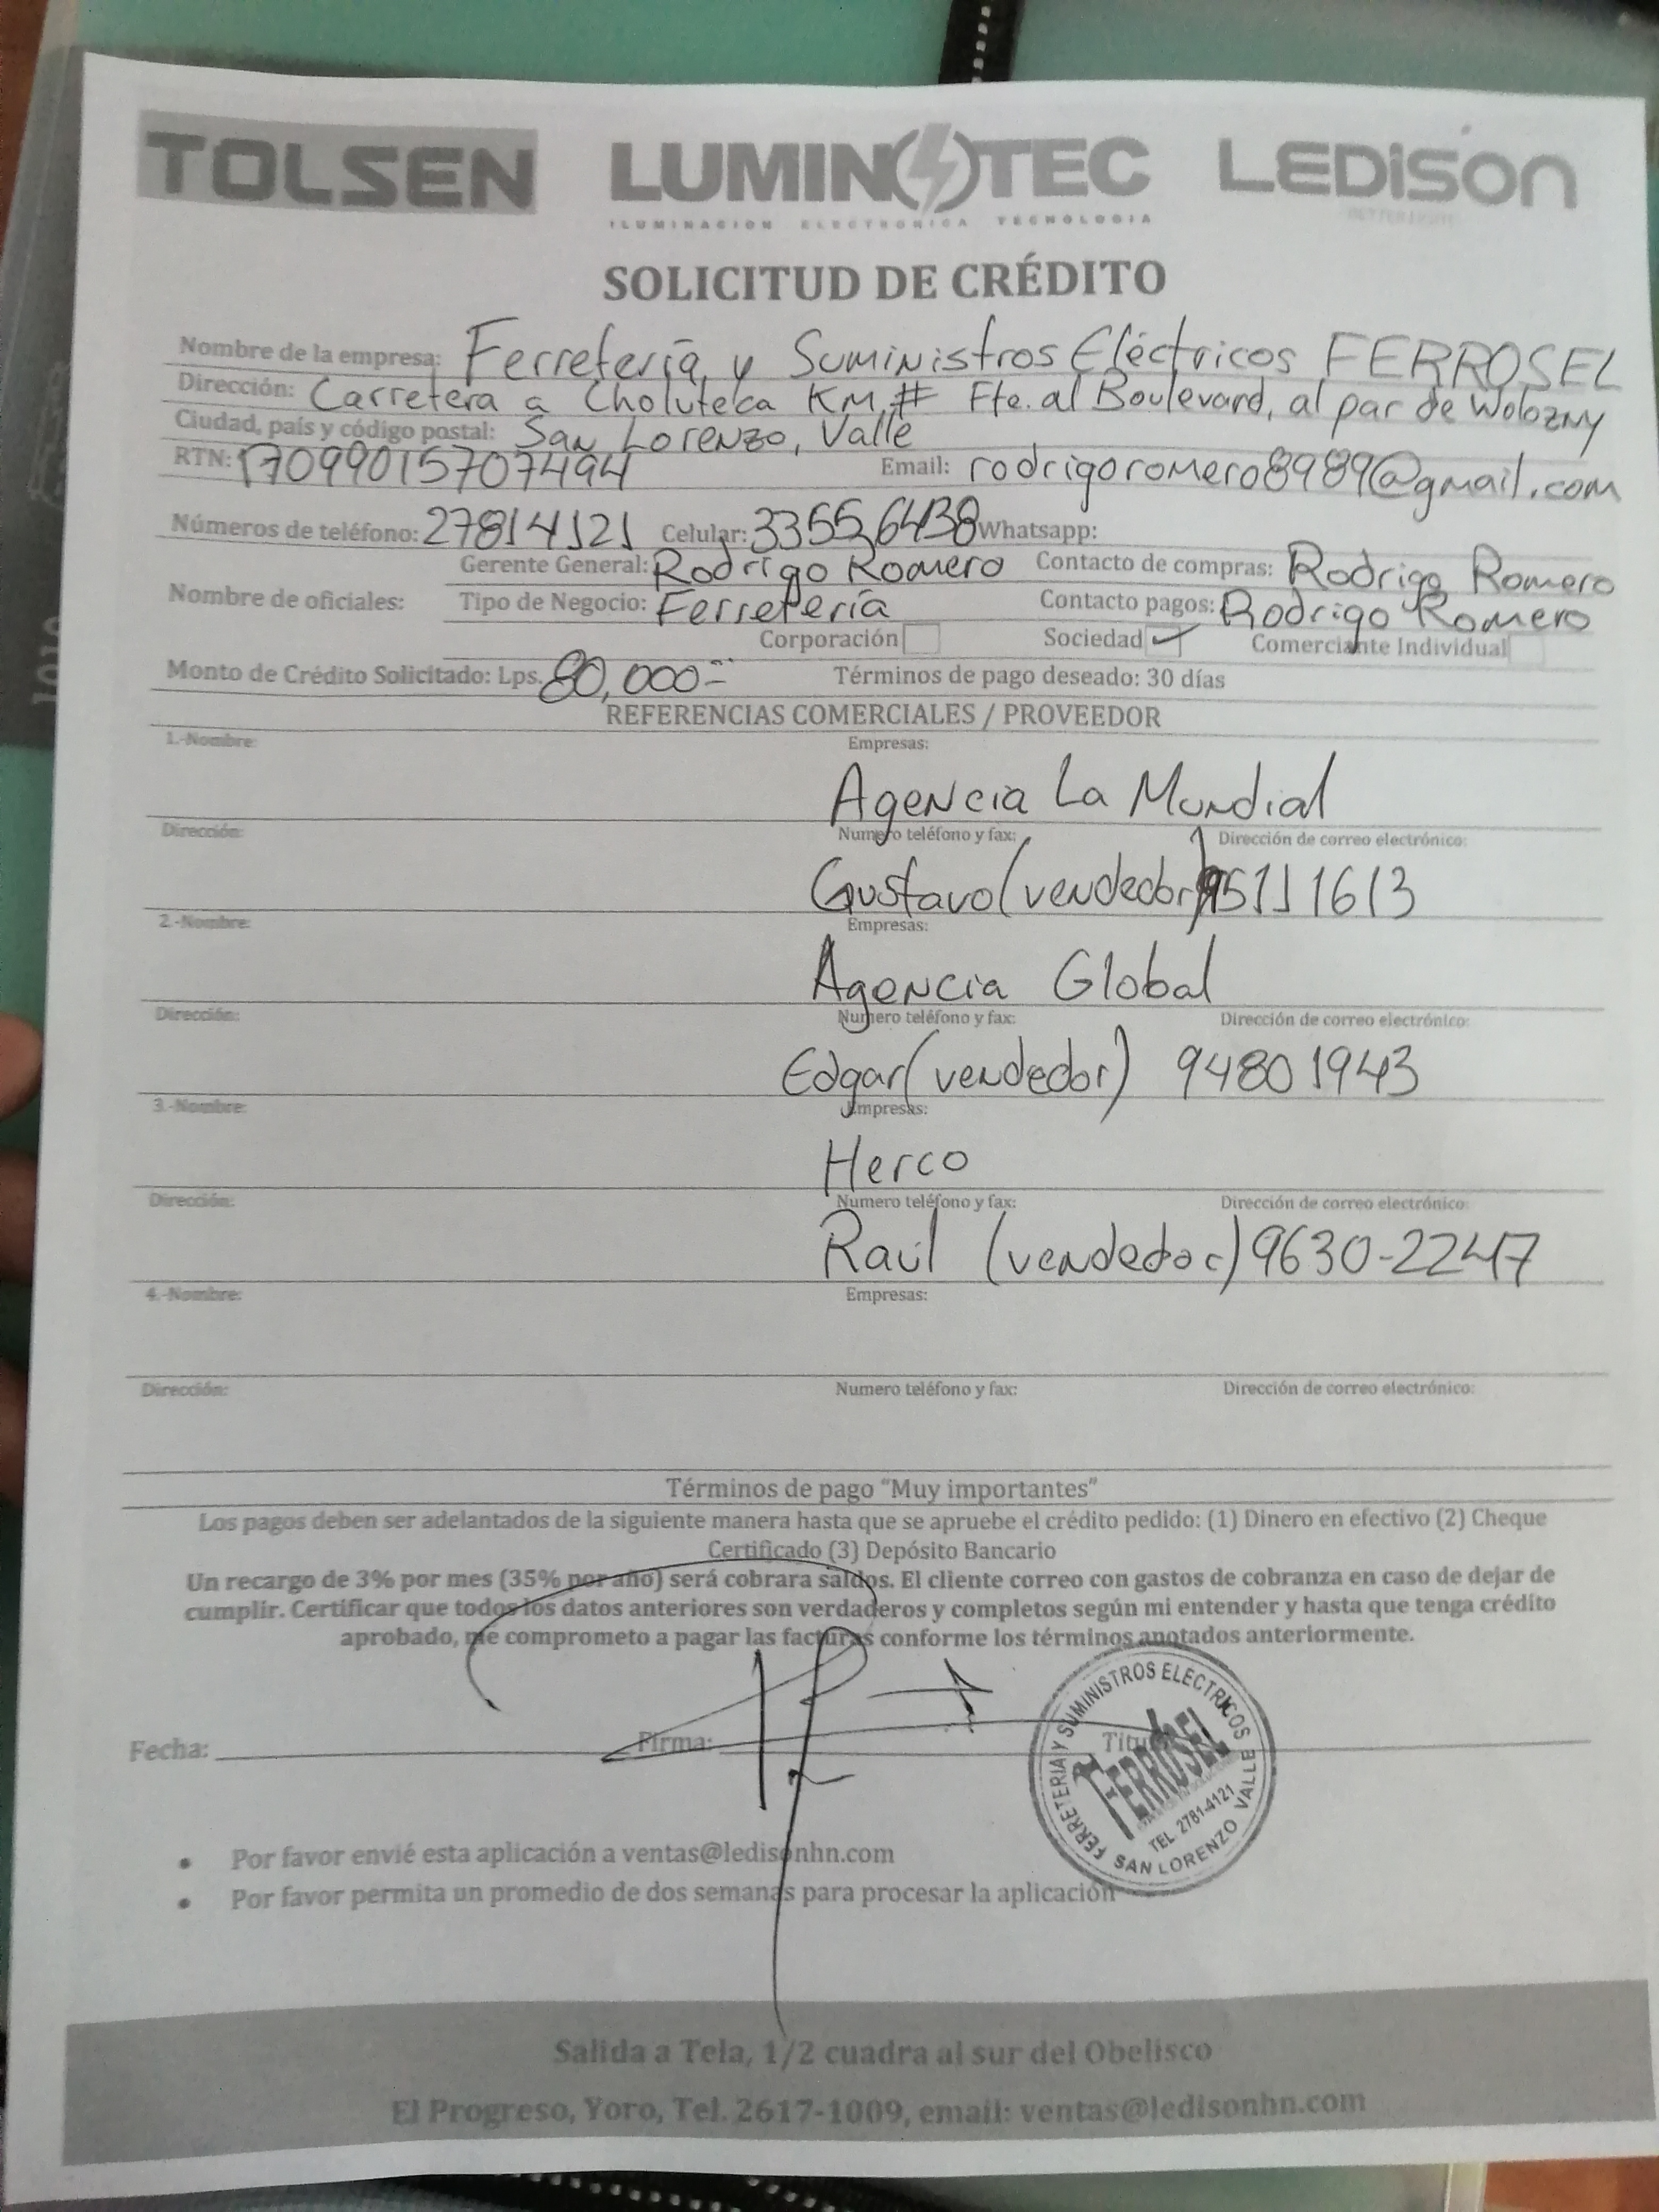 TOLSEN LUMINOTEC LEDISON
ILUMINACION ELECTRONICA TECNOLOGIA
SOLICITUD DE CRÉDITO
Nombre de la empresa: Ferretería y Suministros Eléctricos FERROSEL
Dirección: Carretera a Choluteca KM,# Fte. al Boulevard, al par de Wolozny
Ciudad, país y código postal: San Lorenzo, Valle
RTN: Email: rodrigoromero8989@gmail.com
Números de teléfono: 27814121 Celular: 33556438 Whatsapp:
Gerente General: Rodrigo Romero Contacto de compras: Rodrigo Romero
Nombre de oficiales: Tipo de Negocio: Ferretería Contacto pagos: Rodrigo Romero
Corporación Sociedad Comerciante Individual
Monto de Crédito Solicitado: Lps. 80,000= Términos de pago deseado: 30 días
REFERENCIAS COMERCIALES / PROVEEDOR
1.-Nombre: Empresas:
Agencia La Mundial
Dirección: Numero teléfono y fax: Dirección de correo electrónico:
Gustavo (vendedor) 95111613
2.-Nombre: Empresas:
Agencia Global
Dirección: Numero teléfono y fax: Dirección de correo electrónico:
Edgar (vendedor) 94801943
3.-Nombre: Empresas:
Herco
Dirección: Numero teléfono y fax: Dirección de correo electrónico:
Raúl (vendedor) 9630-2247
4.-Nombre: Empresas:
Dirección: Numero teléfono y fax: Dirección de correo electrónico:
Términos de pago “Muy importantes”
Los pagos deben ser adelantados de la siguiente manera hasta que se apruebe el crédito pedido: (1) Dinero en efectivo (2) Cheque
Certificado (3) Depósito Bancario
Un recargo de 3% por mes (35% por año) será cobrara saldos. El cliente correo con gastos de cobranza en caso de dejar de
cumplir. Certificar que todos los datos anteriores son verdaderos y completos según mi entender y hasta que tenga crédito
aprobado, me comprometo a pagar las facturas conforme los términos anotados anteriormente.
Fecha: Firma:
FERRETERIA Y SUMINISTROS ELECTRICOS
FERROSEL
TEL 2781-4121
SAN LORENZO VALLE
• Por favor envié esta aplicación a ventas@ledisonhn.com
• Por favor permita un promedio de dos semanas para procesar la aplicación
Salida a Tela, 1/2 cuadra al sur del Obelisco
El Progreso, Yoro, Tel. 2617-1009, email: ventas@ledisonhn.com